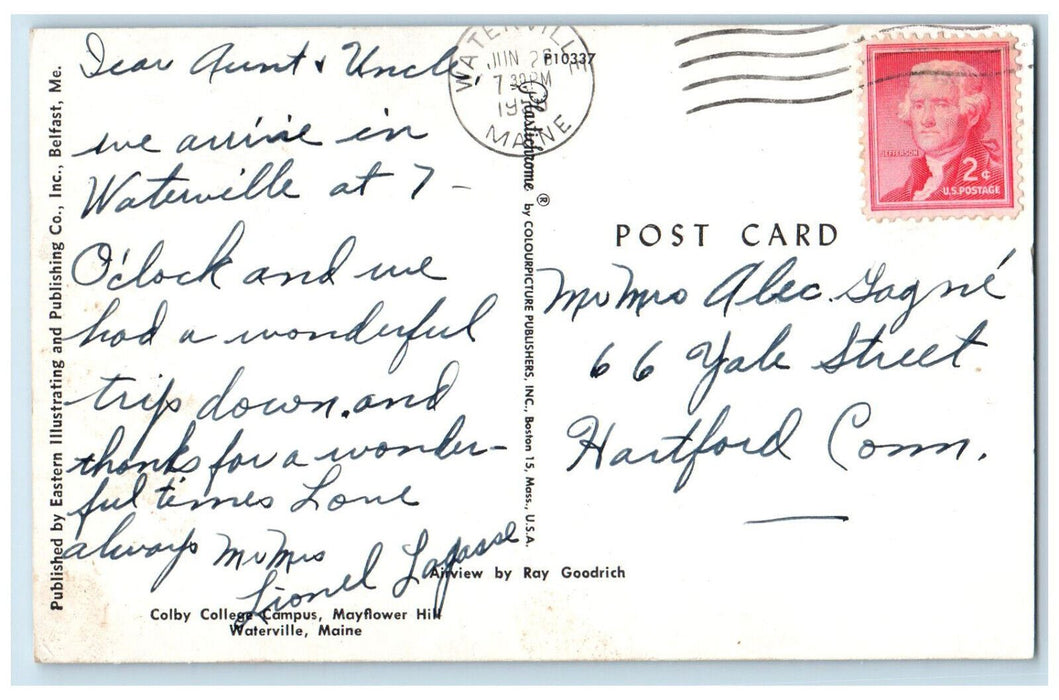 Dear Aunt & Uncle,
we arrive in
Waterville at 7 –
O'clock and we
had a wonderful
trip down. and
thanks for a wonder-
ful times Love
always Mr Mrs
Lionel Lagasse
Colby College Campus, Mayflower Hill
Waterville, Maine
Airview by Ray Goodrich
Published by Eastern Illustrating and Publishing Co., Inc., Belfast, Me.
Plastichrome ® by COLOURPICTURE PUBLISHERS, INC., Boston 15, Mass., U.S.A.
P10337
WATERVILLE
JUN
7 30 PM
MAINE
JEFFERSON
2¢
U.S. POSTAGE
POST CARD
Mr Mrs Alec. Gagné
66 Yale Street
Hartford Conn.